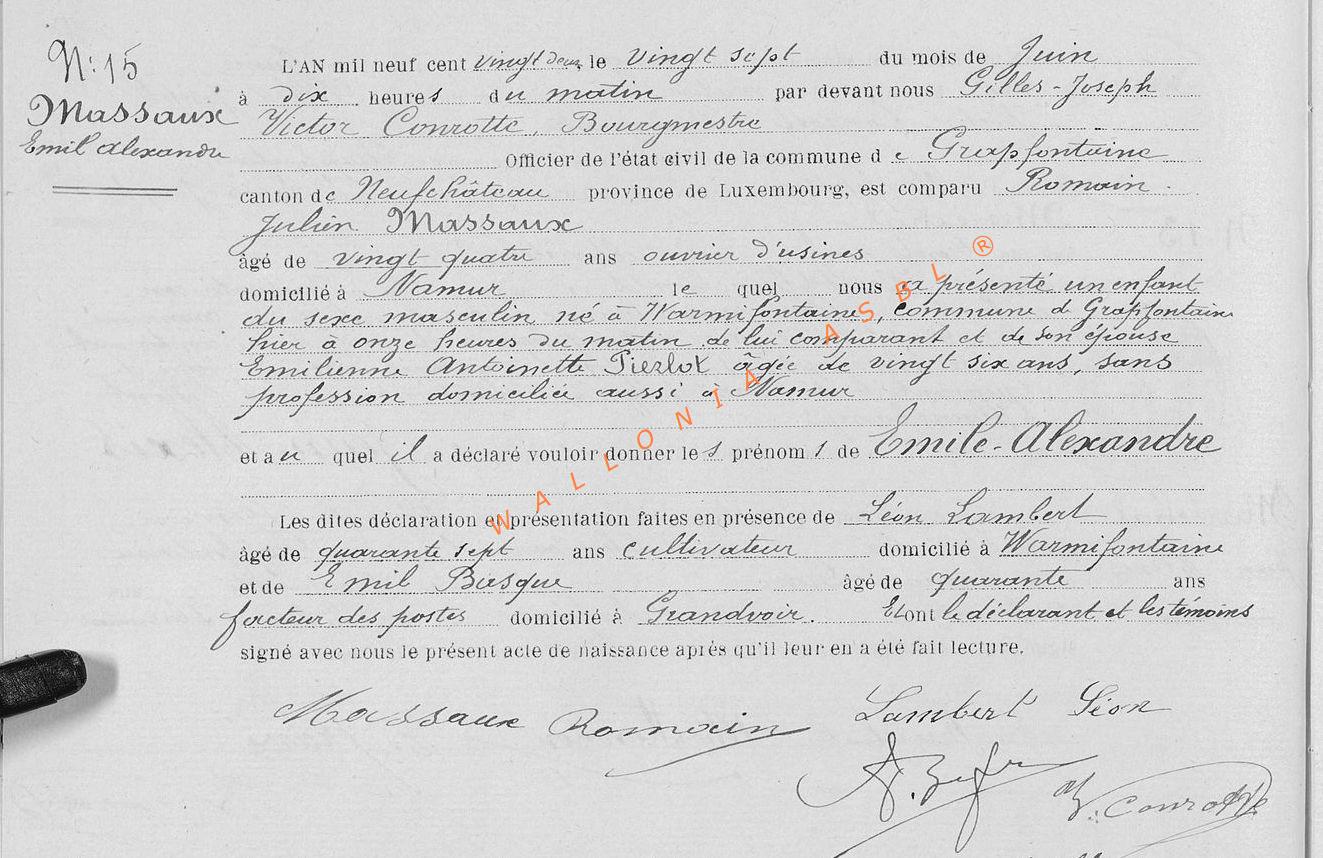 N: 15
Massaux
Emil Alexandre
L'AN mil neuf cent vingt deux le vingt sept du mois de Juin
à dix heures du matin par devant nous Gilles-Joseph
Victor Conrotte, Bourgmestre
Officier de l'état civil de la commune de Grapfontaine
canton de Neufchâteau province de Luxembourg, est comparu Romain
Julien Massaux
âgé de vingt quatre ans ouvrier d'usines
domicilié à Namur le quel nous a présenté un enfant
du sexe masculin né à Warmifontaine, commune d Grapfontaine
hier à onze heures du matin de lui comparant et de son épouse
Emilienne Antoinette Pierlot âgée de vingt six ans, sans
profession domiciliée aussi à Namur
et au quel il a déclaré vouloir donner les prénoms de Emile-Alexandre
Les dites déclaration et présentation faites en présence de Léon Lambert
âgé de quarante sept ans cultivateur domicilié à Warmifontaine
et de Emil Basque âgé de quarante ans
facteur des postes domicilié à Grandvoir. Et ont le déclarant et les témoins
signé avec nous le présent acte de naissance après qu'il leur en a été fait lecture.
Massaux Romain Lambert Léon
V. Conrotte
WALLONIA ASBL ®